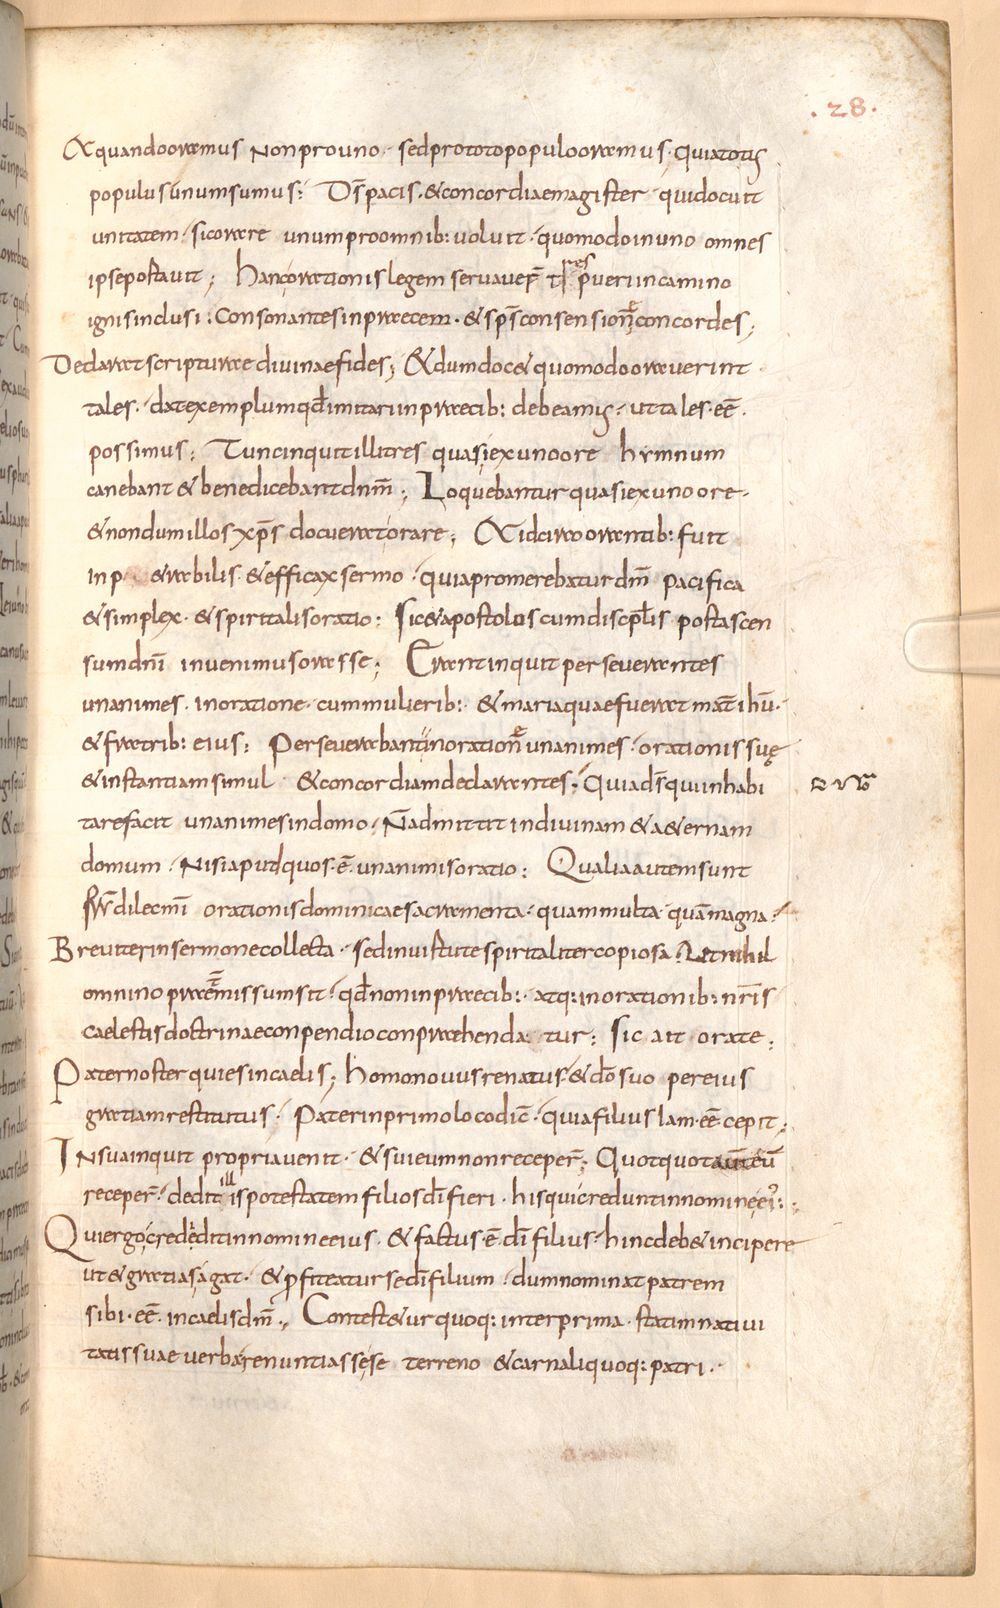 .28.
Et quando oramus non pro uno · sed pro toto populo oramus · quia totus
populus unum sumus : Ds̄ pacis · & concordiae magister · qui docuit
unitatem · sic orare unum pro omnib: voluit · quomodo in uno omnes
ipse portavit ; Hanc orationis legem servaver̄ tres pueri in camino
ignis inclusi : Consonantes in praecem · & sp̄s consensione concordes ;
Declarat scripturae divinae fides ; & dum doc& quomodo oraverint
tales · dat exemplum qđ imitari in praecib: debeamus · ut tales · eē ·
possimus ; Tunc inquit illi tres quasi ex uno ore hymnum
canebant & benedicebant dnm̄ ; Loquebantur quasi ex uno ore ·
& nondum illos xp̄s docuerat orare ; Et idcirco orantib: fuit
inp &rabilis · & efficax sermo · quia promerebatur dm̄ pacifica
& simplex · & spiritalis oratio : Sic & apostolos cum discipl̄is post ascen
sum dnī invenimus orasse ; Erant inquit perseverantes
unanimes · in oratione · cum mulierib: · & maria quae fuerat mat̄ ihū ·
& fratrib: eius ; Perseverabant in oratione unanimes · orationis suę
& instantiam simul & concordiam declarantes ; Quia ds̄ qui inhabi
tare facit unanimes in domo · N̄ admittit in divinam & a&ernam
domum · Nisi aput quos · ē · unanimis oratio ; Qualia autem sunt
fr̄s dilecm̄i orationis dominicae sacramenta · quam multa · quā magna ·
Breviter in sermone collecta · sed in virtute spiritaliter copiosa · Ut nihil
omnino praetermissum sit · qđ non in praecib: · atq: in orationib: nr̄is
caelestis doctrinae conpendio conpraehenda tur ; Sic ait orate ;
Pater noster qui es in caelis ; Homo novus renatus · & dō suo per eius
gratiam restitutus · Pater in primo loco dic̄ · quia filius iam · eē cepit ;
In sua inquit propria venit · & sui eum non receper̄ ; Quotquot autē eū
receper̄ · dedit illis potestatem filios dī fieri · his qui credunt in nomine ei' ;
Qui ergo credidit in nomine eius · & factus · ē · dī filius · hinc deb& incipere
ut & gratias agat · & p̄fiteatur se dī filium · dum nominat patrem
sibi · eē · in caelis dm̄ ; Contest&ur quoq: inter prima · statim nativi
tatis suae verba renuntiasse se terreno & carnali quoq: patri ·